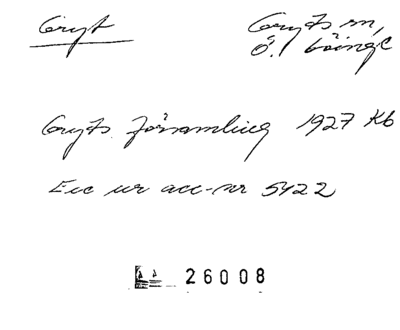 Gryt
Gryts sn,
Ö. Göinge
Gryts församling 1927 Kb
Exc ur acc-nr 5422
26008